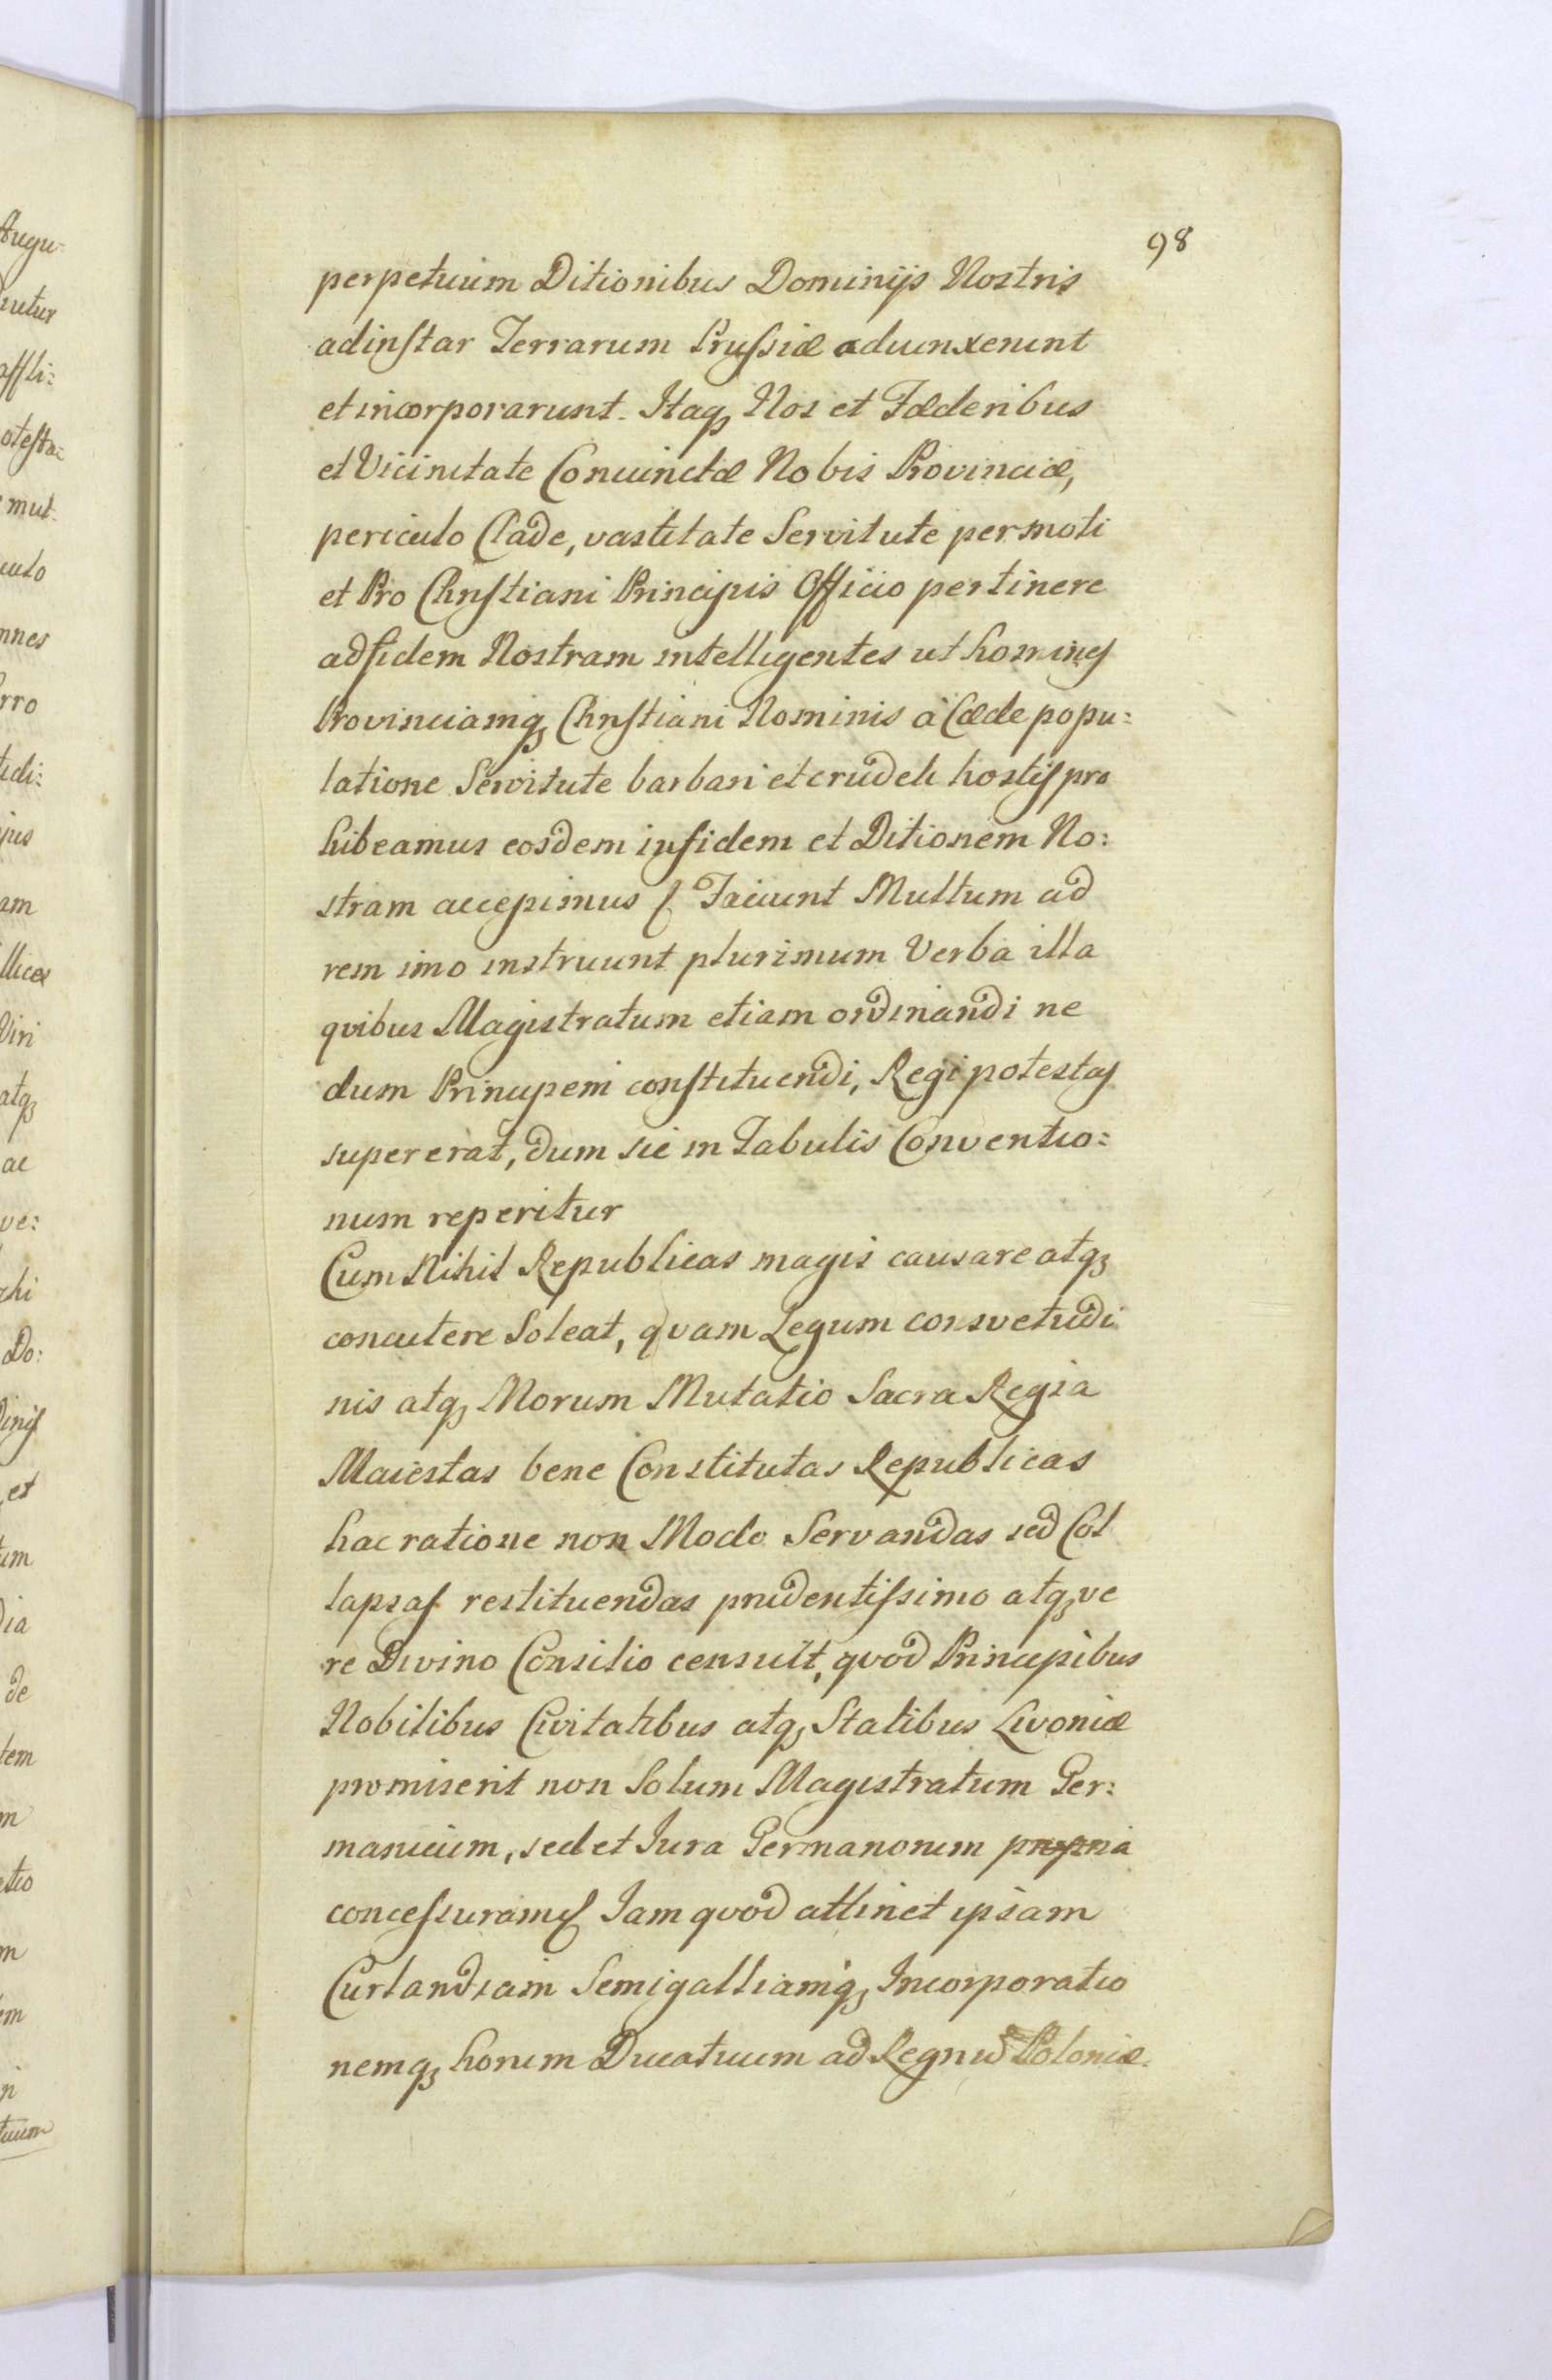 98
perpetuum Ditionibus Dominijs Nostris
adinstar Terrarum Prussiæ adiunxerunt
et incorporarunt. Itaq, Nos et Fæderibus
et Vicinitate Coniunctæ Nobis Provinciæ,
periculo Clade, vastitate Servitute permoti
et Pro Christiani Principis Officio pertinere
ad fidem Nostram intelligentes ut homines
Provinciamq, Christiani Nominis à Cæde popu:
latione Servitute barbari et crudeli hostis pro
hibeamus eosdem in fidem et Ditionem No:
stram accepimus Faciunt Multum ad
rem imo instruunt plurimum Verba illa
qvibus Magistratum etiam ordinandi ne
dum Principem constituendi, Regi potestas
supererat, dum sic in Tabulis Conventio:
num reperitur
Cum Nihil Republicas magis causare atq,
concutere Soleat, qvam Legum consvetudi
nis atq, Morum Mutatio Sacra Regia
Maiestas bene Constitutas Republicas
hac ratione non Modo Servandas sed Col
lapsas restituendas prudentissimo atq, ve
re Divino Consilio censuit, qvod Principibus
Nobilibus Civitatibus atq, Statibus Livoniæ
promiserit non Solum Magistratum Ger:
manicum, sed et Iura Germanorum propria
concessuram Iam qvod attinet ipsam
Curlandiam Semigalliamq, Incorporatio
nemq, horum Ducatuum ad Regnū Poloniæ
Augu:
mul:
atq,
Do:
et
de
tuum